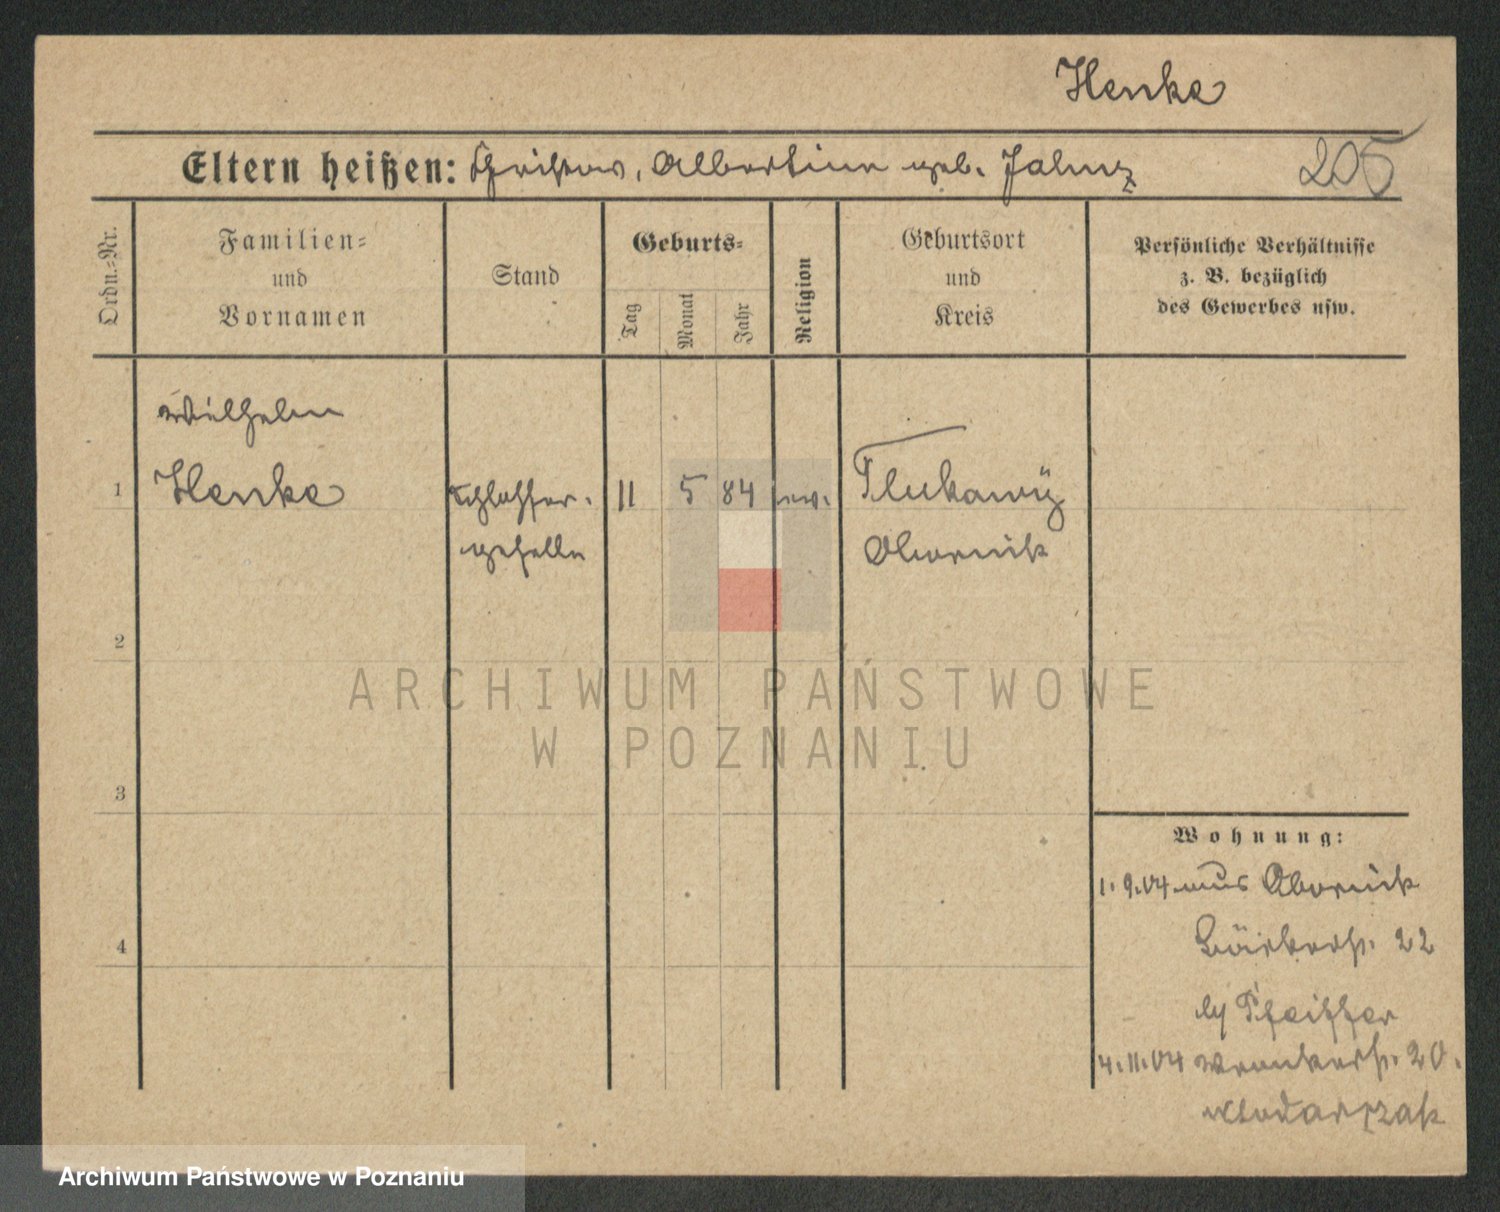 Henke
Eltern heißen: Christow, Albertine geb. Jahnz 205
Ordn.-Nr.
Familien-
und
Vornamen
Stand
Geburts-
Tag
Monat
Jahr
Religion
Geburtsort
und
Kreis
Persönliche Verhältnisse
z. B. bezüglich
des Gewerbes usw.
Wilhelm
1 Henke Schlosser- 11 5 84 ev. Tlukawy
geselle Obornik
2
3
4
Wohnung:
1.9.04 aus Obornik
22
by Pfeiffer
4.11.04 Wronkerstr. 20.
Wlodarczak
ARCHIWUM PAŃSTWOWE
W POZNANIU
Archiwum Państwowe w Poznaniu